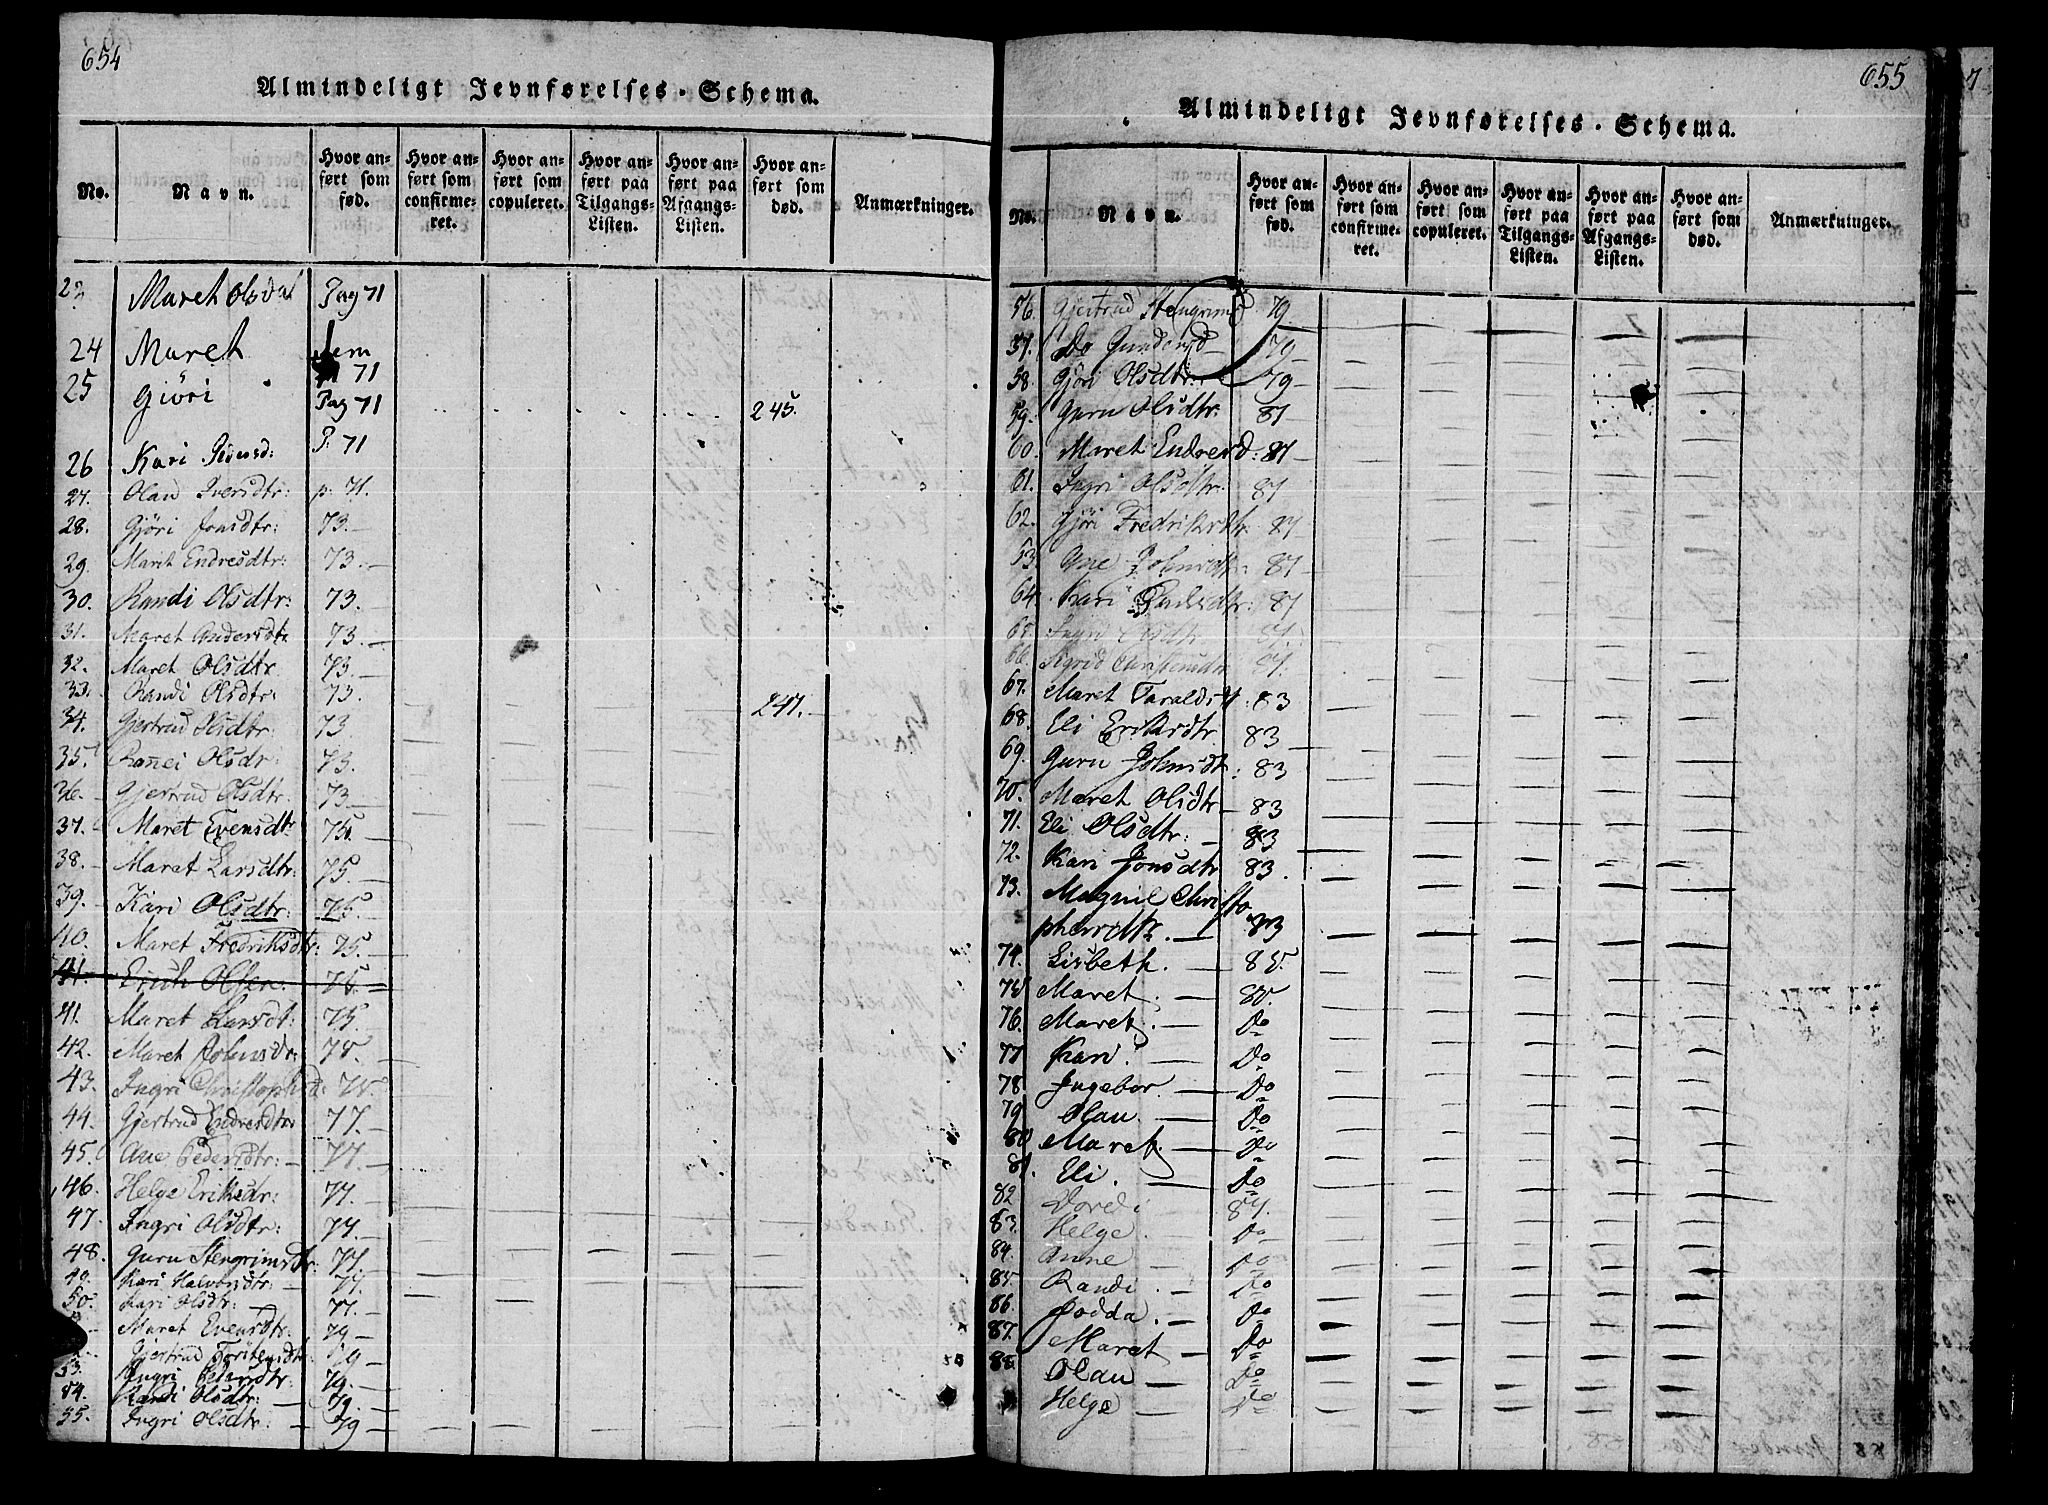 654
Almindeligt Jevnførelses-Schema.
No. Navn. Hvor anført som fød. Hvor anført som confirmeret. Hvor anført som copuleret. Hvor anført paa Tilgangs-Listen. Hvor anført paa Afgangs-Listen. Hvor anført som død. Anmærkninger.
Maret Olsda Pag 71
24 Maret
71
25 Giöri Pag 71 245.
26 Kari P. 71
27. Olau Iversdtr: p. 71.
28. Gjöri Jonsdtr: 73.
29. Marit Endresdtr: 73.
30. Randi Olsdtr: 73.
31. Maret Andersdtr 73.
32. Maret Olsdtr 73.
33. Randi Olsdtr: 73. 247.
34. Gjertrud Olsdtr: 73.
35. Olsdr: 73.
36. Gjertrud Olsdtr: 73.
37. Maret Evensdtr 75.
38. Maret Larsdtr: 75.
39. Kari Olsdtr: 75.
40. Maret Fredriksdtr: 75.
41. Erich Olsen: 75.
41. Maret Larsdt: 75.
42. Maret Johnsdr: 75.
43. Ingri 75.
44. Gjertrud Endresdtr 77.
45. Ane Pedersdtr: 77.
46. Helge Eriksdr: 77.
47. Ingri Olsdtr: 77.
48. Guru Stengrimsdtr: 77.
49. Kari Halvorsdtr: 77.
50. Kari Olsdtr: 77.
Maret Evensdtr: 79
Gjertrud 79
53. Ingri Pedersdtr: 79.
54. Randi Olsdtr: 79.
55. Ingri Olsdtr: 79
655
Almindeligt Jevnførelses-Schema.
No. Navn. Hvor anført som fød. Hvor anført som confirmeret. Hvor anført som copuleret. Hvor anført paa Tilgangs-Listen. Hvor anført paa Afgangs-Listen. Hvor anført som død. Anmærkninger.
56. Gjertrud Stengrimsd 79
57. Do Gundersd 79
58. Gjöri Olsdtr: 79
59. Guru Olsdtr: 81
60. Maret Endresd: 81
61. Ingri Olsdtr: 81
62. Gjöri Fredriksdtr: 81
63. Ane Johnsdtr: 81
64. Kari 81
65. Ingrid Olsdtr 81.
66. Sigrid 81.
67. Maret Taraldsdt: 83
68. Eli Eriksdtr 83
69. Guru Johnsdt: 83
70. Maret Olsdtr 83
71. Eli Olsdtr: 83
72. Kari Jonsdtr 83.
73. Magnil Christo
phersdtr. 83
74. Lisbeth. 85.
75. Maret. 85.
76. Maret. Do
77. Kari. Do
78. Ingebor. Do
79. Olau. Do
80. Maret. Do
81. Eli. Do
82 Dordi 87.
83. Helge. Do
84. Anne Do
85. Randi. Do
86. Do
87. Maret Do
88. Olau Do
Helge Do